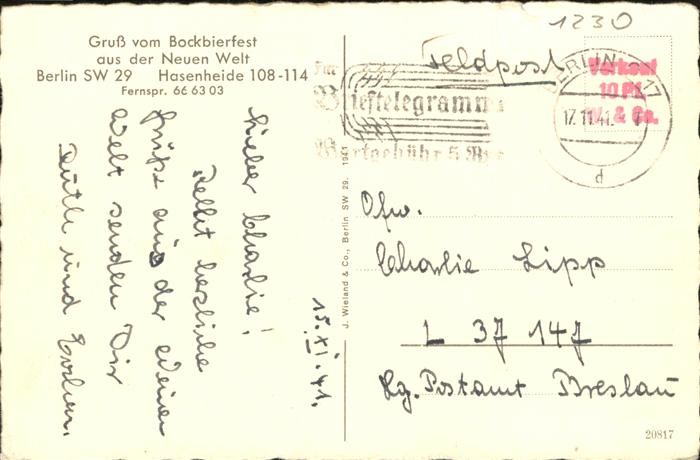 Gruß vom Bockbierfest
aus der Neuen Welt
Berlin SW 29 Hasenheide 108-114
Fernspr. 66 63 03
Lieber Charlie!
herzliche
Grüße aus der
Welt senden Dir
Ruth und
15.XI.41.
J. Wieland & Co., Berlin SW 29. 1941
1230
Feldpost
Verkauf
10 Pf.
W. & Co.
BERLIN
17.11.41.
d
Für
Brieftelegramme
Wortgebühr 5 Rpf
Ofw.
Charlie Lipp
L 37 147
Lg. Postamt Breslau
20817